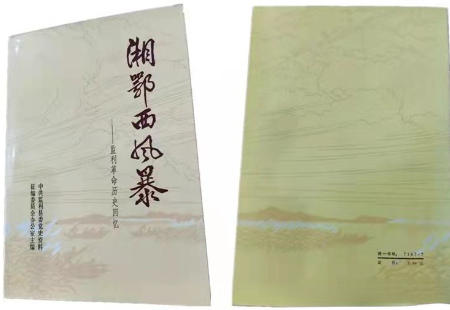 湘鄂西风暴
——监利革命历史回忆
中共监利县委党史资料
征编委员会办公室主编